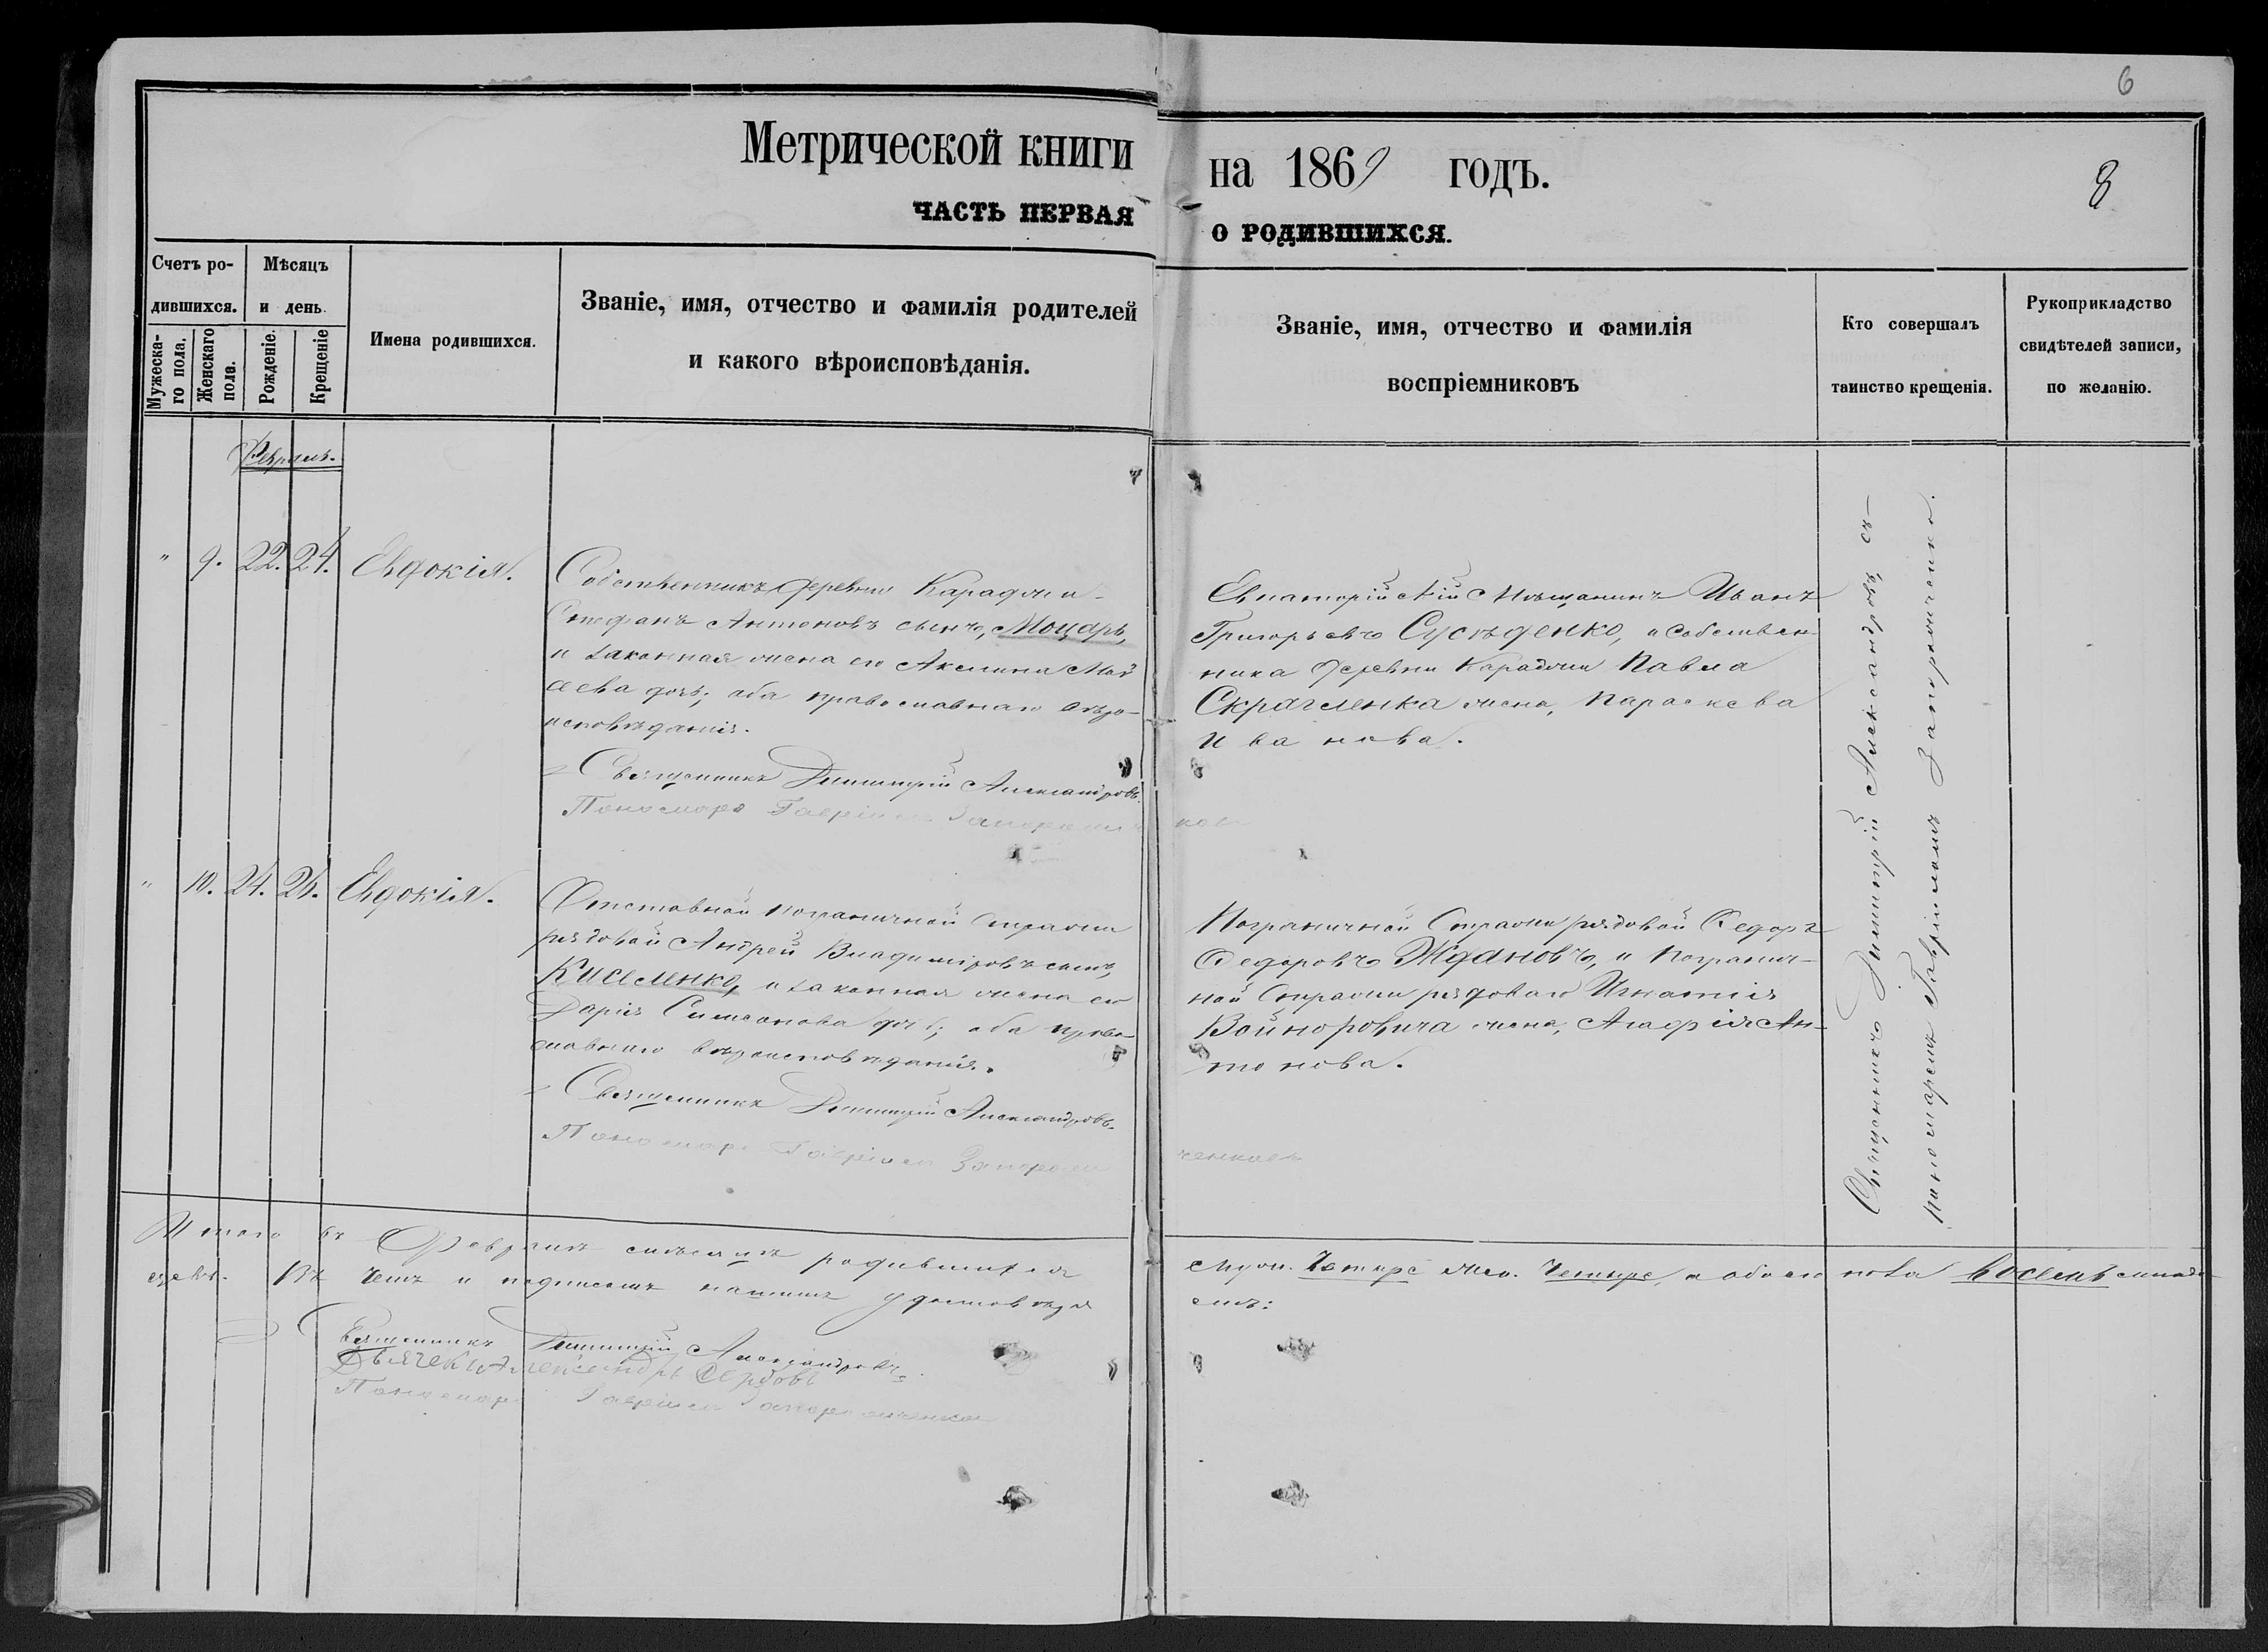 6
Метрической книги
на 1869 годъ.
8
ЧАСТЬ ПЕРВАЯ
О РОДИВШИХСЯ.
Счетъ ро-
дившихся.
Мужеска-
го пола.
Женскаго
пола.
Мѣсяцъ
и день.
Рожденіе.
Крещеніе
Имена родившихся.
Званіе, имя, отчество и фамилія родителей
и какого вѣроисповѣданія.
Званіе, имя, отчество и фамилія
воспріемниковъ
Кто совершалъ
таинство крещенія.
Рукоприкладство
свидѣтелей записи,
по желанію.
Февраль.
" 9. 22. 24. Евдокія.
Собственникъ деревни Караджи
Стефанъ Антоновъ сынъ, Моцарь,
и законная жена его Акилина Мой
сеева дочь; оба православнаго вѣро-
исповѣданія.
Священникъ Димитрій Александровъ.
Пономарь Гавріилъ
Евпаторійскій Мѣщанинъ Иванъ
Григорьевъ Сусѣденко, и собствен-
ника деревни Караджи Павла
жена, Параскева
Иванова.
Священникъ Димитрій Александровъ, съ
пономаремъ Гавріиломъ Запорожченко.
" 10. 24. 26. Евдокія.
Отставной пограничной Стражи
рядовой Андрей Владиміровъ сынъ,
Киселенко, и законная жена его
Дарія Симеонова дочь; оба право-
славнаго вѣроисповѣданія.
Священникъ Димитрій Александровъ.
Пономарь Гавріилъ Запорож
ченковъ
Пограничной Стражи рядовой Федоръ
Федоровъ Ждановъ, и погранич-
ной Стражи рядоваго Игнатія
Войноровича жена, Агафія Ан-
тонова.
Итого въ Февралѣ мѣсяцѣ родившихся
муж. Четыре жен. Четыре, а обоего пола восемь младе
нцевъ. Въ чемъ и подписомъ нашимъ удостовѣря
емъ:
Священникъ Димитрій Александровъ.
Дьячекъ Александръ Сербовъ
Пономарь Гавріилъ Запорожченковъ